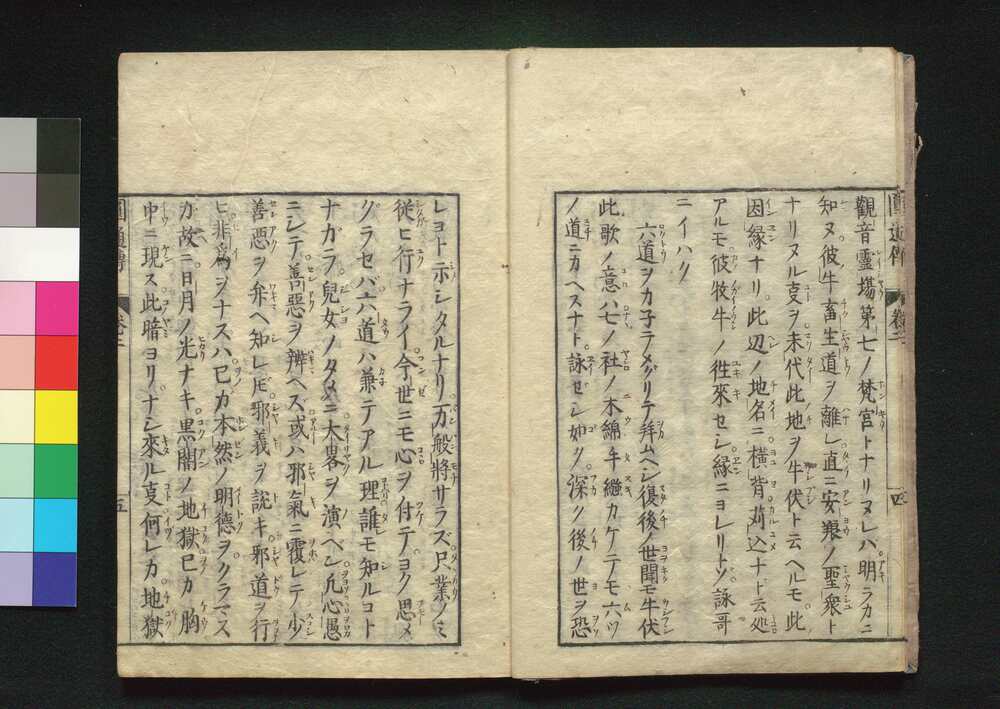 圓通傳 卷二 四
觀音靈塲第七ノ梵宮トナリヌレハ明ラカニ
知ヌ彼牛畜生道ヲ離レ直ニ安養ノ聖衆ト
ナリヌル叓ヲ末代此地ヲ牛伏ト云ヘルモ此
因縁ナリ此辺ノ地名ニ橫背苅込ナト云処
アルモ彼牧牛ノ徃來セシ縁ニヨレリトソ詠哥
ニイハク
六道ヲカ子テメグリテ拜ムヘシ復後ノ世聞モ牛伏
此歌ノ意ハ七ノ社ノ木綿手繦カケテモ六ツ
ノ道ニカヘスナト詠ゼシ如ク深ク後ノ世ヲ恐
レヨト示シタルナリ万般將サラズ尺業ノミ
從ヒ行ナライ今世ニモ心ヲ付テヨク思メ
グラセバ六道ハ兼テアル理誰モ知ルコト
ナガラ兒女ノタメニ大畧ヲ演ベシ凡心愚
ニシテ善惡ヲ辨ヘス或ハ邪氣ニ覆レテ少
善惡ヲ弁ヘ知レ𪜈邪義ヲ説キ邪道ヲ行
ヒ非爲ヲナスハ已カ本然ノ明德ヲクラマス
カ故ニ日月ノ光ナキ黒闇ノ地獄已カ胸
中ニ現ス此暗ヨリナシ來ル叓何レカ地獄
圓通傳 卷二 五